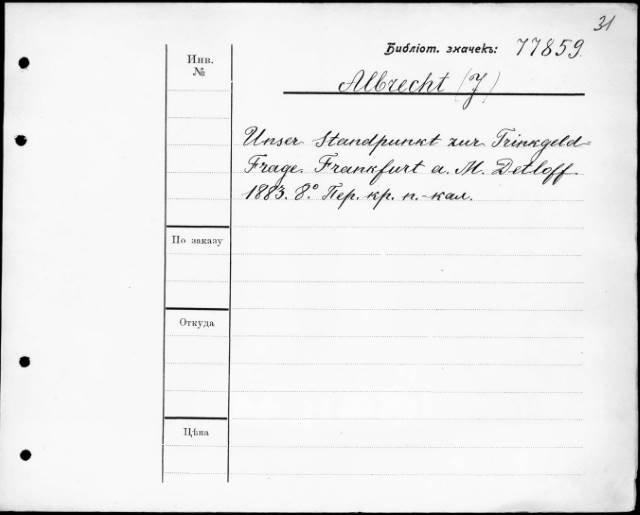 31
Библіот. значекъ: 77859.
Инв.
№
Albrecht (J)
Unser Standpunkt zur Trinkgeld-
Frage. Frankfurt a. M. Detloff.
1883. 8° Пер. кр. п.-кал.
По заказу
Откуда
Цѣна